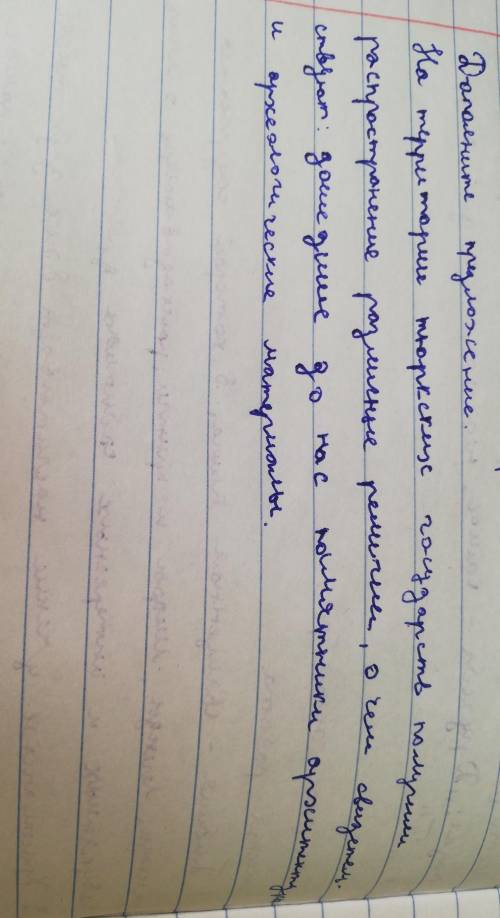 Дополните предложение.
На территории тюркских государств получили
распространение различные религии, о чем свидетель
ствуют: дошедшие до нас памятники архитектуры
и археологические материалы.